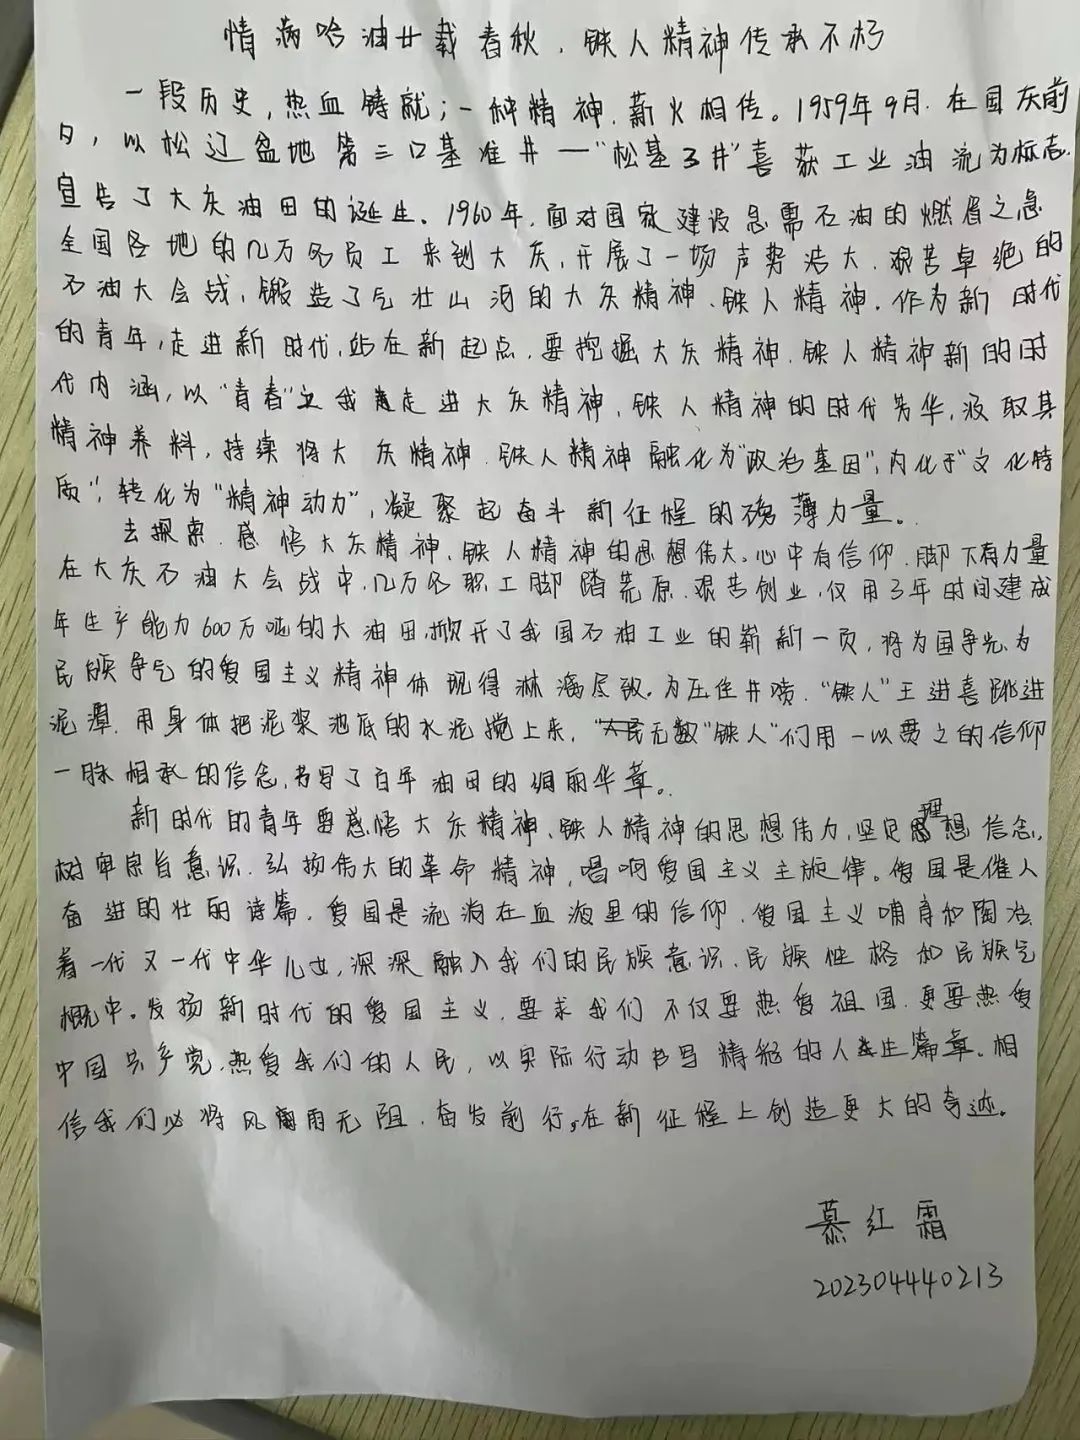 情满哈油廿载春秋，铁人精神传承不朽
一段历史，热血铸就；一种精神，薪火相传。1959年9月，在国庆前
夕，以松辽盆地第三口基准井一"松基3井"喜获工业油流为标志，
宣告了大庆油田的诞生。1960年，面对国家建设急需石油的燃眉之急
全国各地的几万名员工来到大庆，开展了一场声势浩大、艰苦卓绝的
石油大会战，锻造了气壮山河的大庆精神、铁人精神。作为新时代
的青年，走进新时代，站在新起点，要挖掘大庆精神、铁人精神新的时
代内涵，以"青春"之我走进大庆精神、铁人精神的时代芳华，汲取其
精神养料，持续将大庆精神、铁人精神融化为"政治基因"，内化于"文化特
质"，转化为"精神动力"，凝聚起奋斗新征程的磅薄力量。
去探索、感悟大庆精神、铁人精神的思想伟大。心中有信仰，脚下有力量
在大庆石油大会战中，几万名职工脚踏荒原、艰苦创业，仅用3年时间建成
年生产能力600万吨的大油田，掀开了我国石油工业的崭新一页，将为国争先、为
民族争气的爱国主义精神体现得淋漓尽致。为压住井喷，"铁人"王进喜跳进
泥潭，用身体把泥浆池底的水泥搅上来，无数"铁人"们用一以贯之的信仰
一脉相承的信念，书写了百年油田的绚丽华章。
新时代的青年要感悟大庆精神、铁人精神的思想伟力，坚定理想信念，
树牢宗旨意识，弘扬伟大的革命精神，唱响爱国主义主旋律。爱国是催人
奋进的壮丽诗篇，爱国是流淌在血液里的信仰，爱国主义哺育和陶冶
着一代又一代中华儿女，深深融入我们的民族意识、民族性格和民族气
概中。发扬新时代的爱国主义，要求我们不仅要热爱祖国，更要热爱
中国共产党，热爱我们的人民，以实际行动书写精彩的人生篇章。相
信我们必将风雨无阻，奋发前行，在新征程上创造更大的奇迹。
慕红霜
202304440213